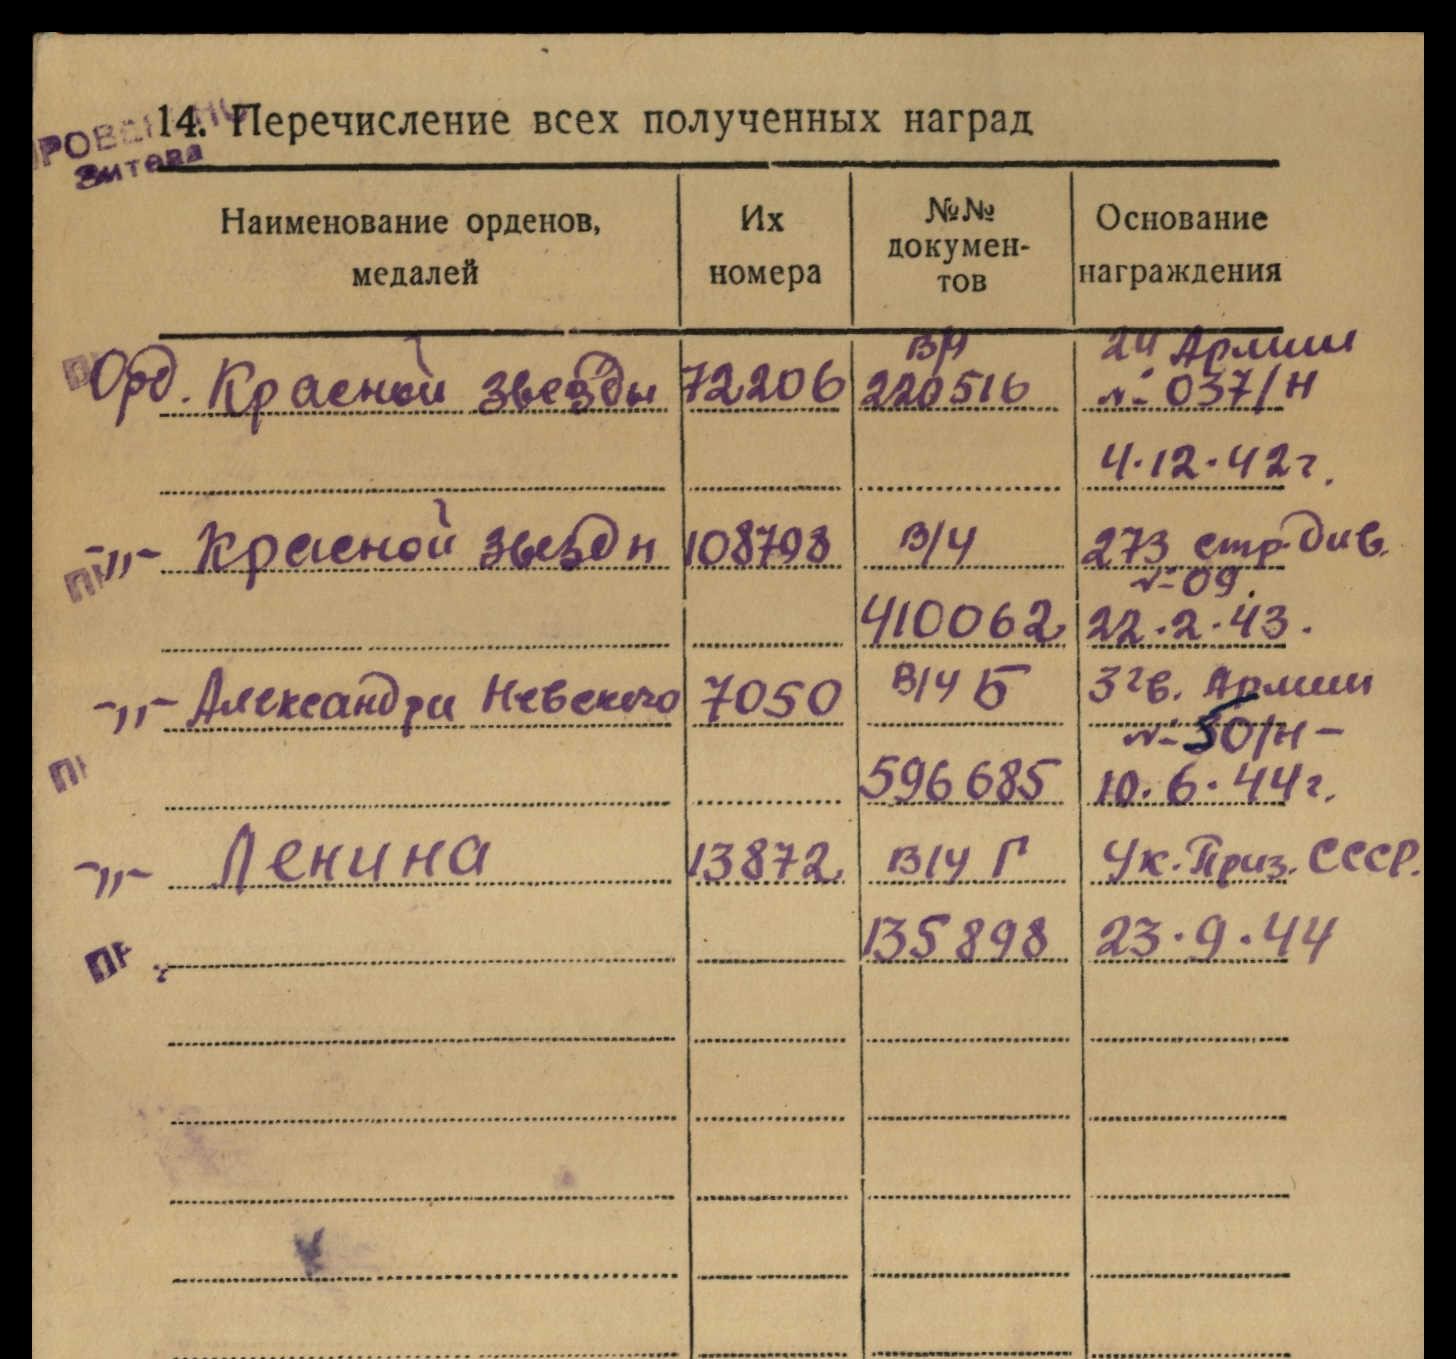 14. Перечисление всех полученных наград
Зитева
Наименование орденов, медалей
Их номера
№№ документов
Основание награждения
Орд. Красной звезды 72206 В/Ч 220516 24 Армии № 037/н
4.12.42г.
-"- Красной звезды 108798 В/Ч 273 стр. див. № 09.
410062 22.2.43.
-"- Александра Невского 7050 В/Ч Б 3 гв. Армии № 50/н -
596685 10.6.44г.
-"- Ленина 13872 В/Ч Г Ук. През. СССР.
135898 23.9.44